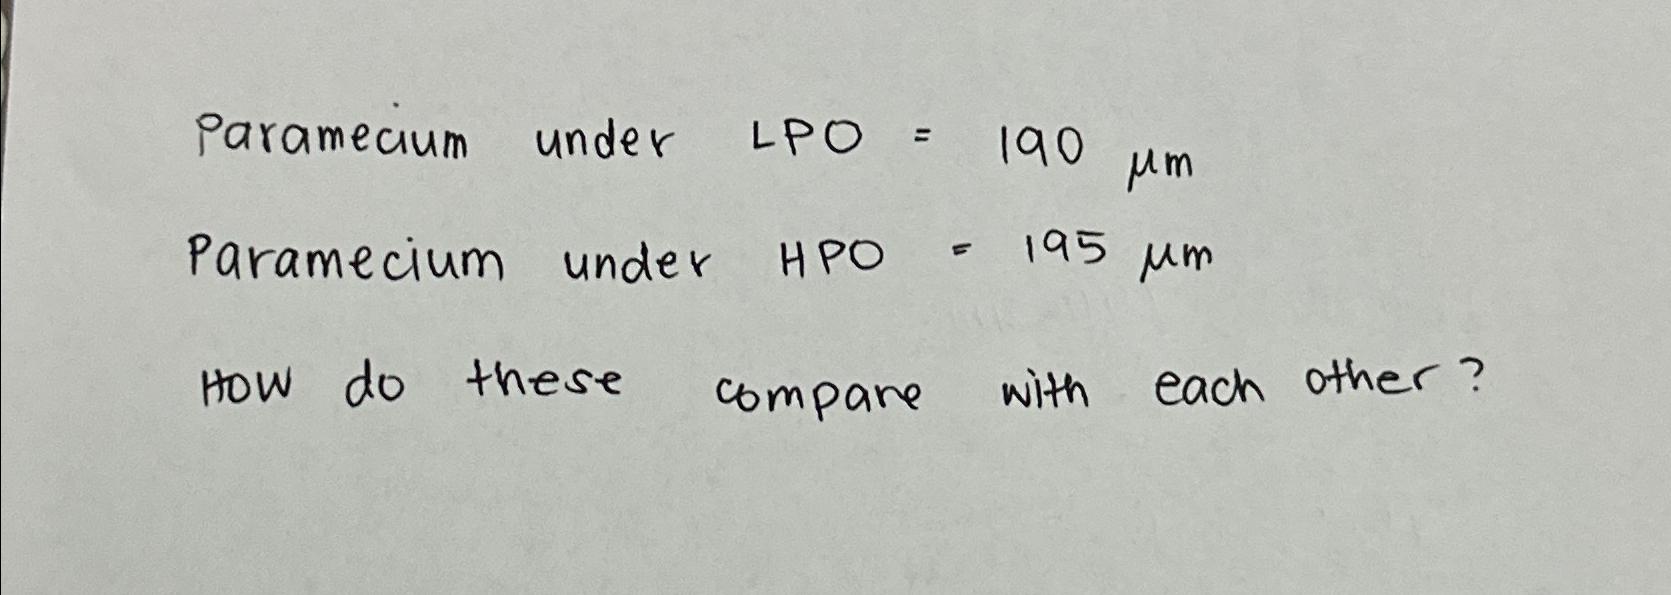 Paramecium under LPO = 190 μm
Paramecium under HPO = 195 μm
How do these compare with each other?